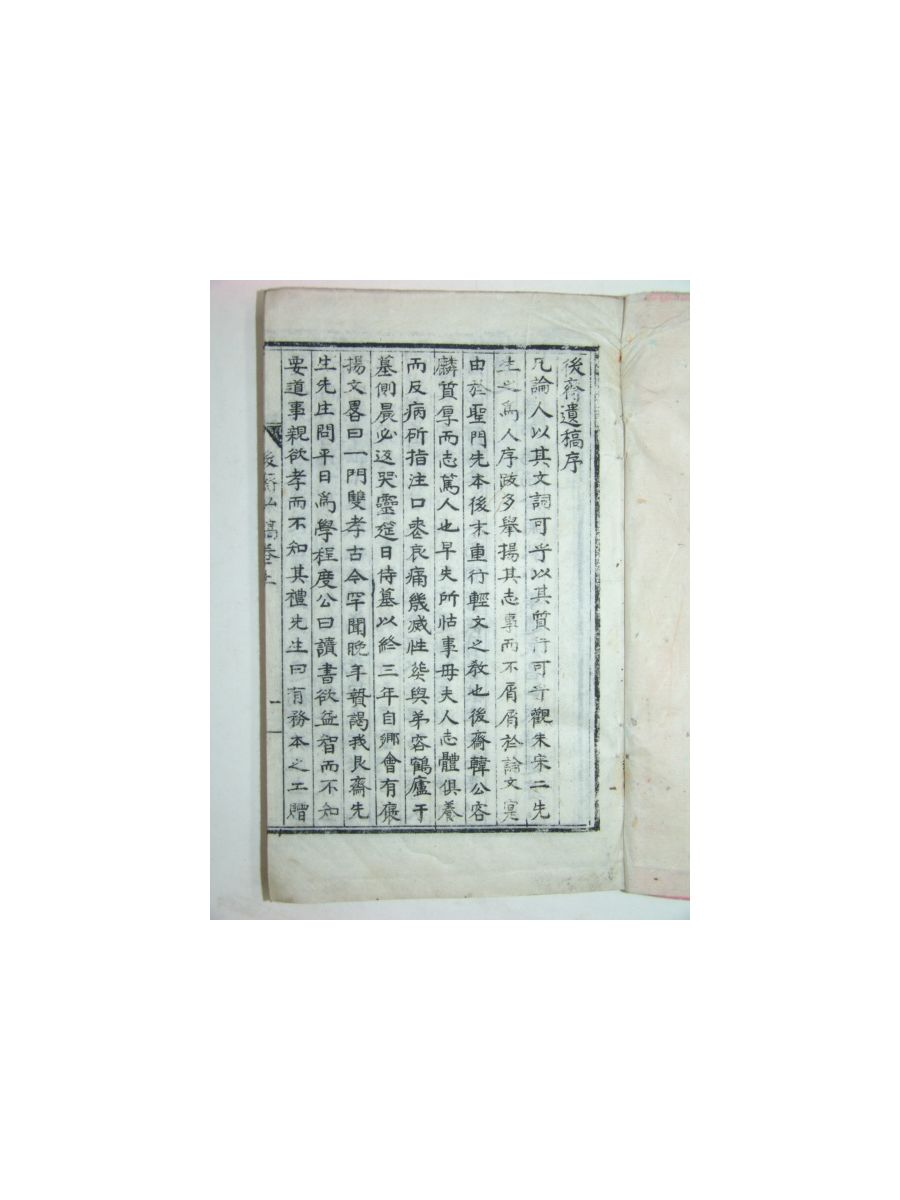 後齋遺稿序
凡論人以其文詞可乎以其質行可乎觀朱宋二先
生之爲人序跋多擧揚其志事而不屑屑於論文寔
由於聖門先本後末重行輕文之敎也後齋韓公容
麟質厚而志篤人也早失所怙事母夫人志體俱養
而反病斫指注口丧哀痛幾滅性葬與弟容鶴廬于
墓側晨必返哭靈筵日侍墓以終三年自鄕會有褒
揚文畧曰一門雙孝古今罕聞晩年贄謁我艮齋先
生先生問平日爲學程度公曰讀書欲益智而不知
要道事親欲孝而不知其禮先生曰有務本之工贈
後齋厶稿卷上
一